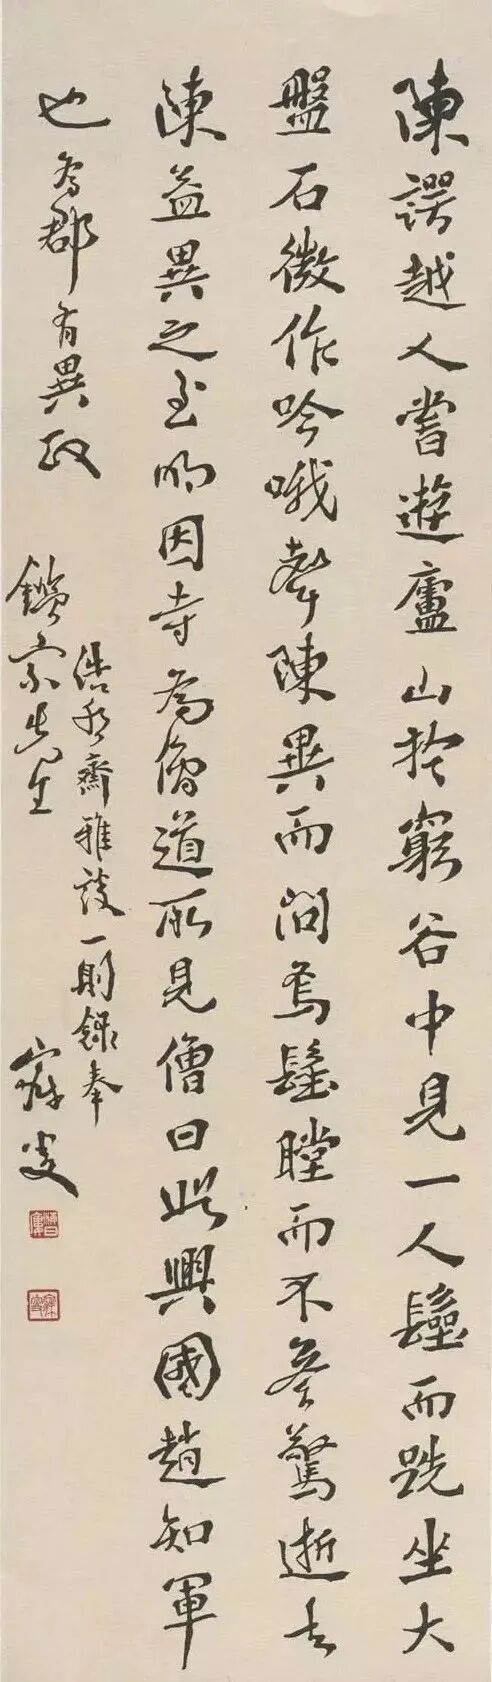 陳諤越人嘗遊廬山於窮谷中見一人而跣坐大
盤石微作吟哦聲陳異而問焉瞠而不答驚逝去
陳益異之至明因寺為僧道所見僧曰此興國趙知軍
也為郡有異政
浩然齋雅談一則錄奉
鑑宗先生 寐叟